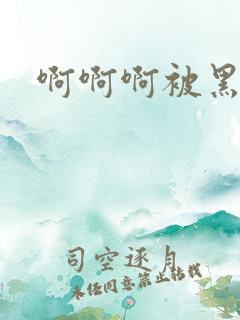 啊啊啊被黑
司空逐月
未经同意禁止转载